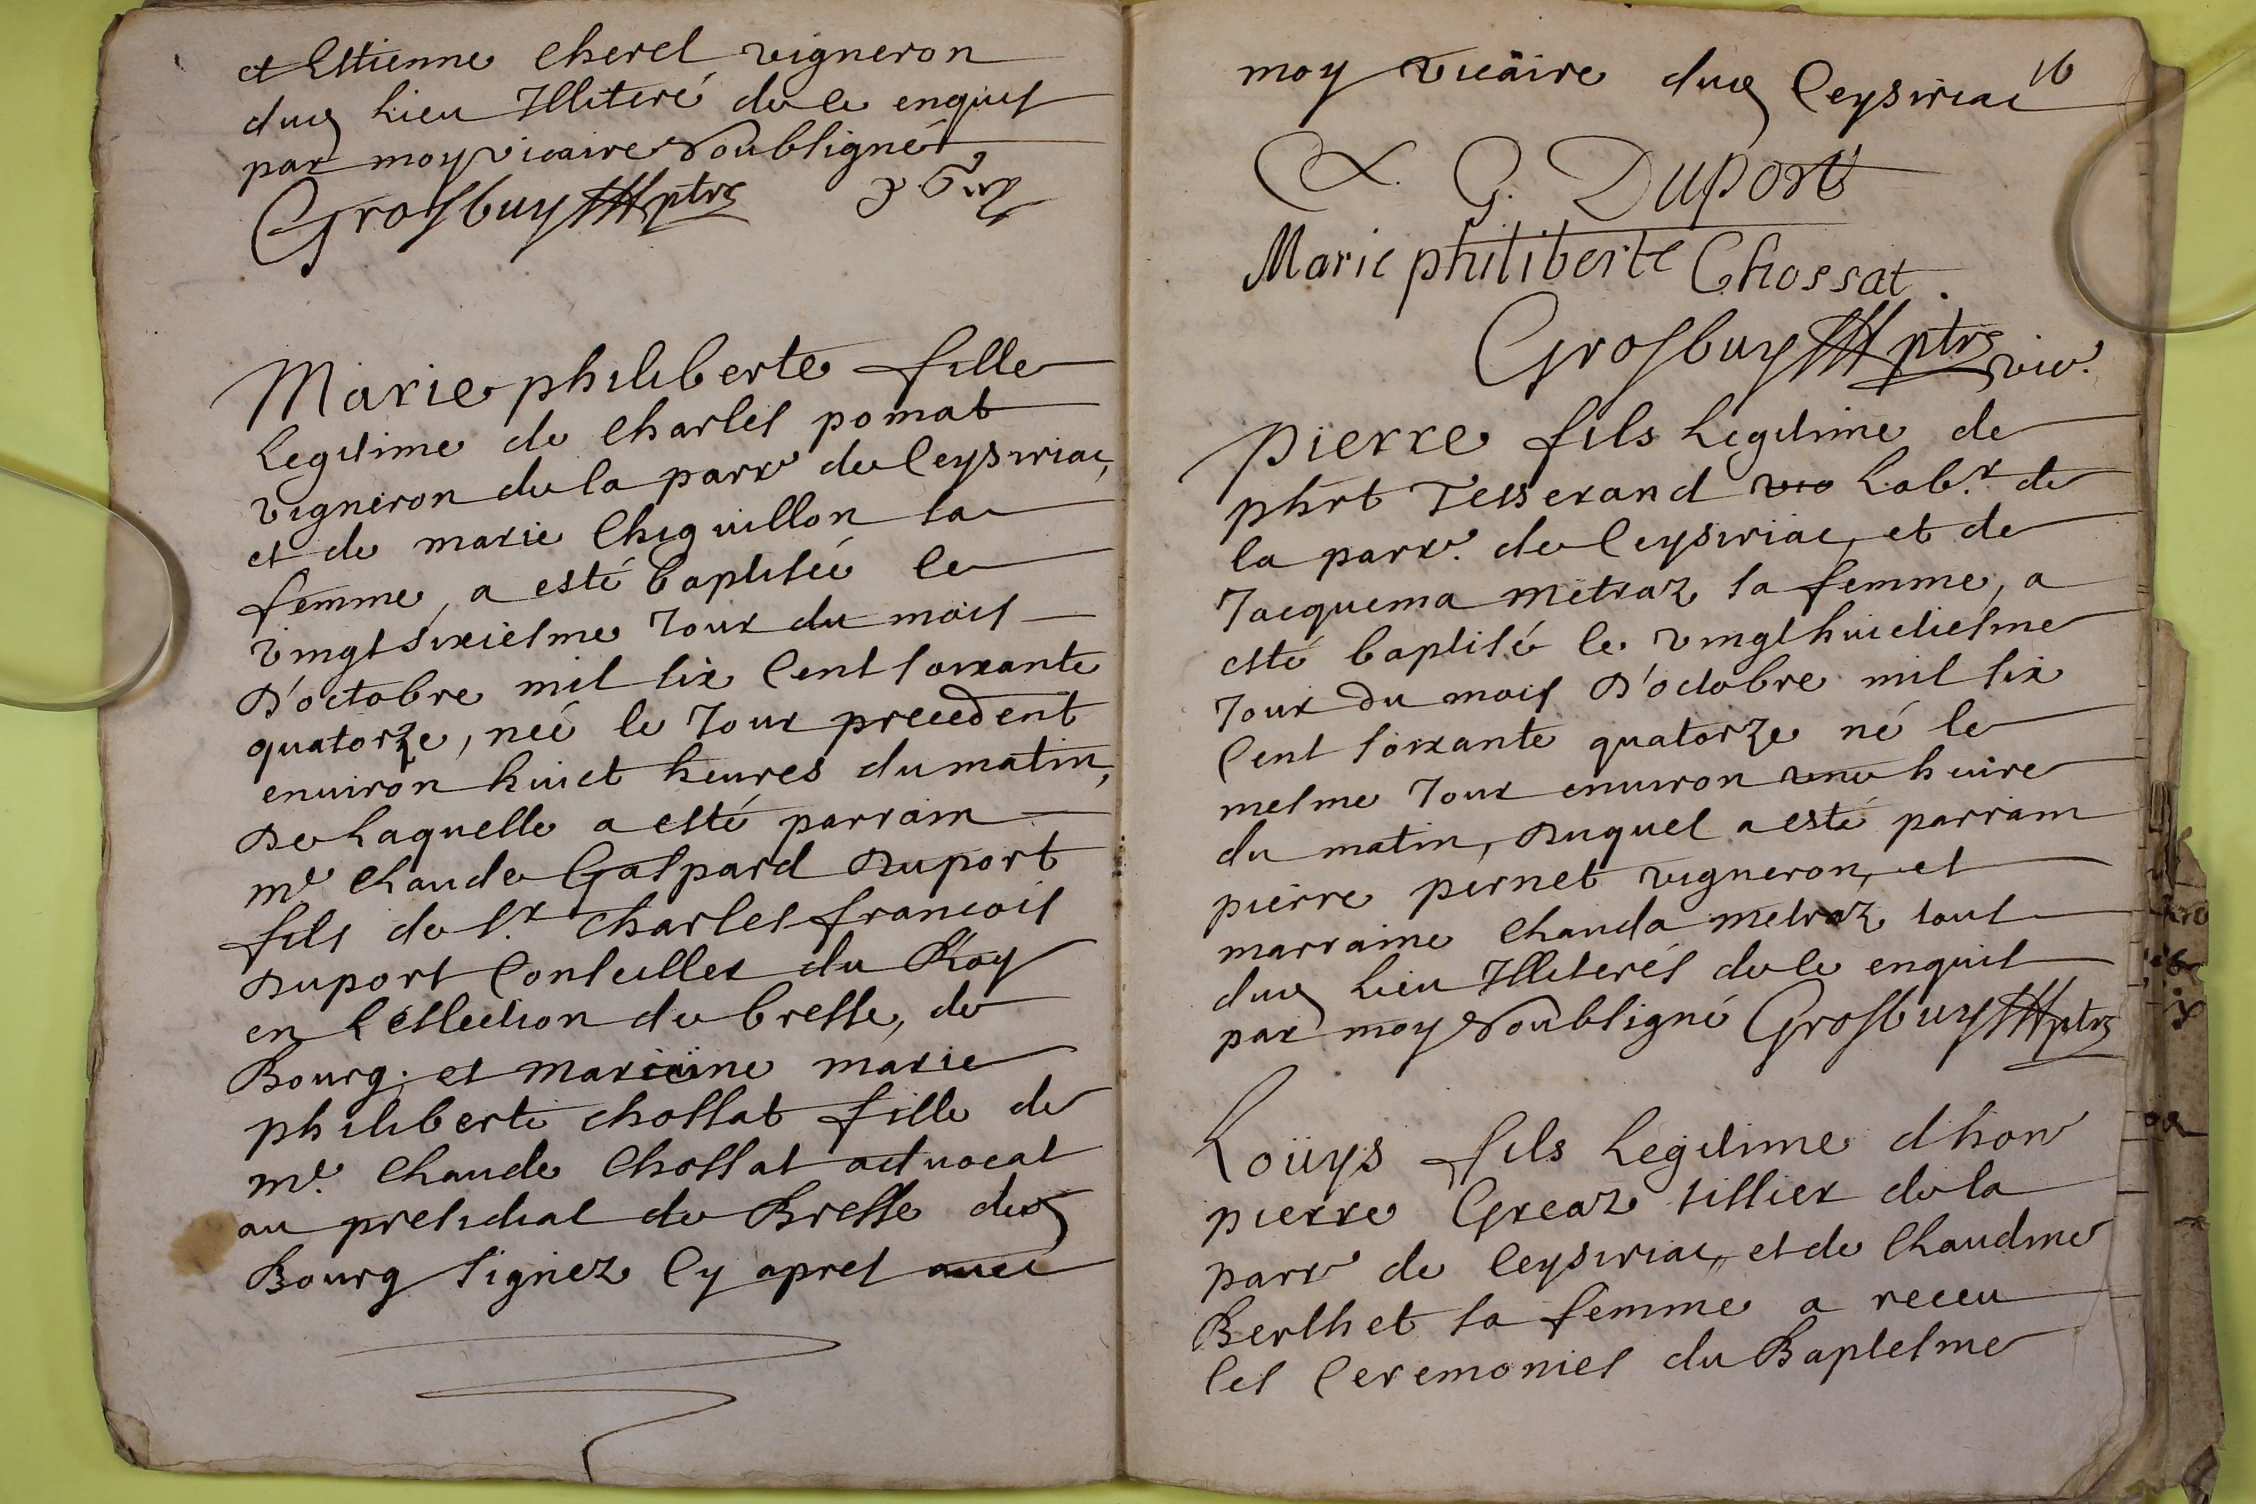 et Estienne Cherel vigneron
dud lieu Illiteré de ce enquis
par moy vicaire soubsigné
Grosbuy ptre
Marie philiberte fille
legitime de Charles pomat
vigneron de la parr^e de Ceysiriac,
et de marie Chiquillon sa
femme, a esté baptisée le
vingtsixiesme Jour du mois
D'octobre mil six Cent soixante
quatorze, née le Jour precedent
enuiron huict heures du matin,
De laquelle a esté parrain
m^e Claude Gaspard Duport
fils de s.^r Charles francois
Duport Conseiller du Roy
en l'eslection de bresse, de
Bourg; et maraine marie
philiberte chossat fille de
m^e. Claude Chossat aduocat
au presidial de Bresse dud
Bourg signez Cy apres auec
moy vicaire dud Ceysiriac 16
C. G. Duport
Marie philiberte Chossat.
Grosbuy ptre vic^e.
Pierre fils legitime de
phrt Tesserand lab.^r de
la parr^e. de Ceysiriac, et de
Jacquema metraz sa femme, a
esté baptisé le vingthuictiesme
Jour du mois D'octobre mil six
Cent soixante quatorze né le
mesme Jour enuiron une heure
du matin, Duquel a esté parrain
pierre pernet vigneron, et
marraine Clauda metraz tous
dud lieu Illiterés de ce enquis
par moy soubsigné Grosbuy ptre
Loüys fils legitime d'hon^e
pierre Greaz tillier de la
parr^e de Ceysiriac, et de Claudine
Berthet sa femme a receu
les Ceremonies du Baptesme